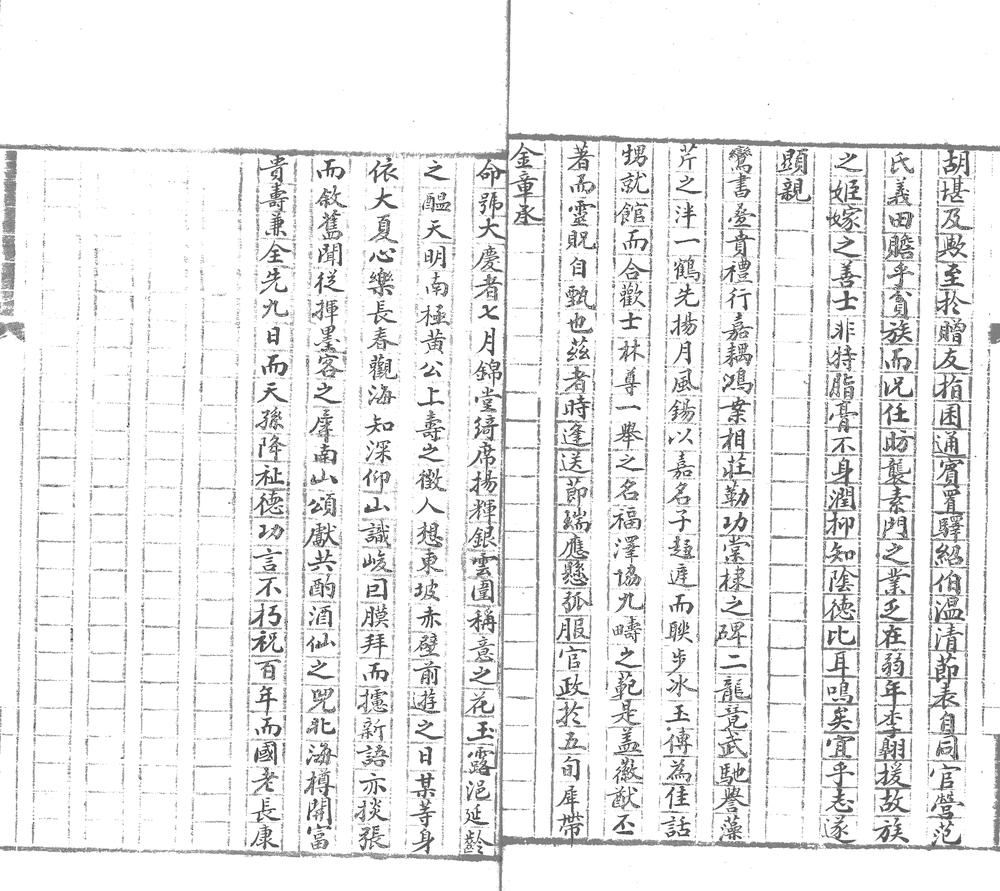 胡堪及歟至於贈友指囷通賓置驛紹伯温清節表自同官營范
氏義田贍乎貧族而况任昉襲素門之業乏在弱年李翺援故族
之姬嫁之善士非特脂膏不身潤抑知陰德比耳鳴矣宜乎志遂
顯親
鸞書叠賁禮行嘉耦鴻案相莊勒功棠棣之碑二龍竟武馳譽藻
芹之泮一鶴先揚月風錫以嘉名子趨遲而聮步冰玉傳為佳話
甥就館而合歡士林尊一舉之名福澤協九疇之範是盖徽猷丕
著而靈貺自甄也茲者時逢送節端應懸弧服官政於五旬犀帶
金章承
命號大慶者七月錦堂綺席揚輝銀雲圍稱意之花玉露浥延齡
之醖天明南極黃公上壽之徵人想東坡赤壁前遊之日某等身
依大夏心樂長春觀海知深仰山識峻回膜拜而攄新語亦掞張
而敘舊聞從揮墨客之屏南山頌獻共酌酒仙之兕北海樽開富
貴壽兼全先九日而天孫降祉德功言不朽祝百年而國老長康